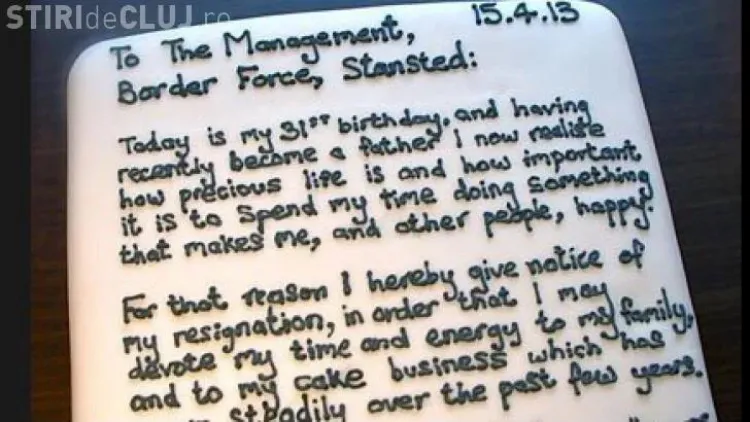 STIRIdeCLUJ.ro
15.4.13
To The Management,
Border Force, Stansted:
Today is my 31st birthday, and having
recently become a father I now realise
how precious life is and how important
it is to spend my time doing something
that makes me, and other people, happy.
For that reason I hereby give notice of
my resignation, in order that I may
devote my time and energy to my family,
and to my cake business which has
steadily over the past few years.